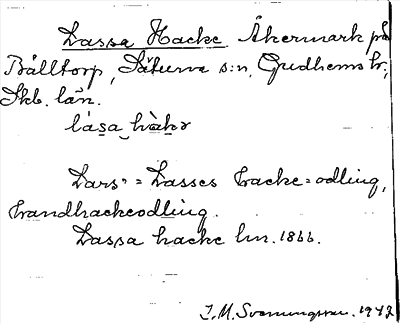 Lassa Hacke Åkermark på
Bålltorp, Säturna s:n, Gudhems hr,
Skb. län.
lása hàkɘ
Lars' = Lasses hacke=odling,
handhackeodling.
Lassa hacke hm. 1866.
J. M. Svenungsson. 1942